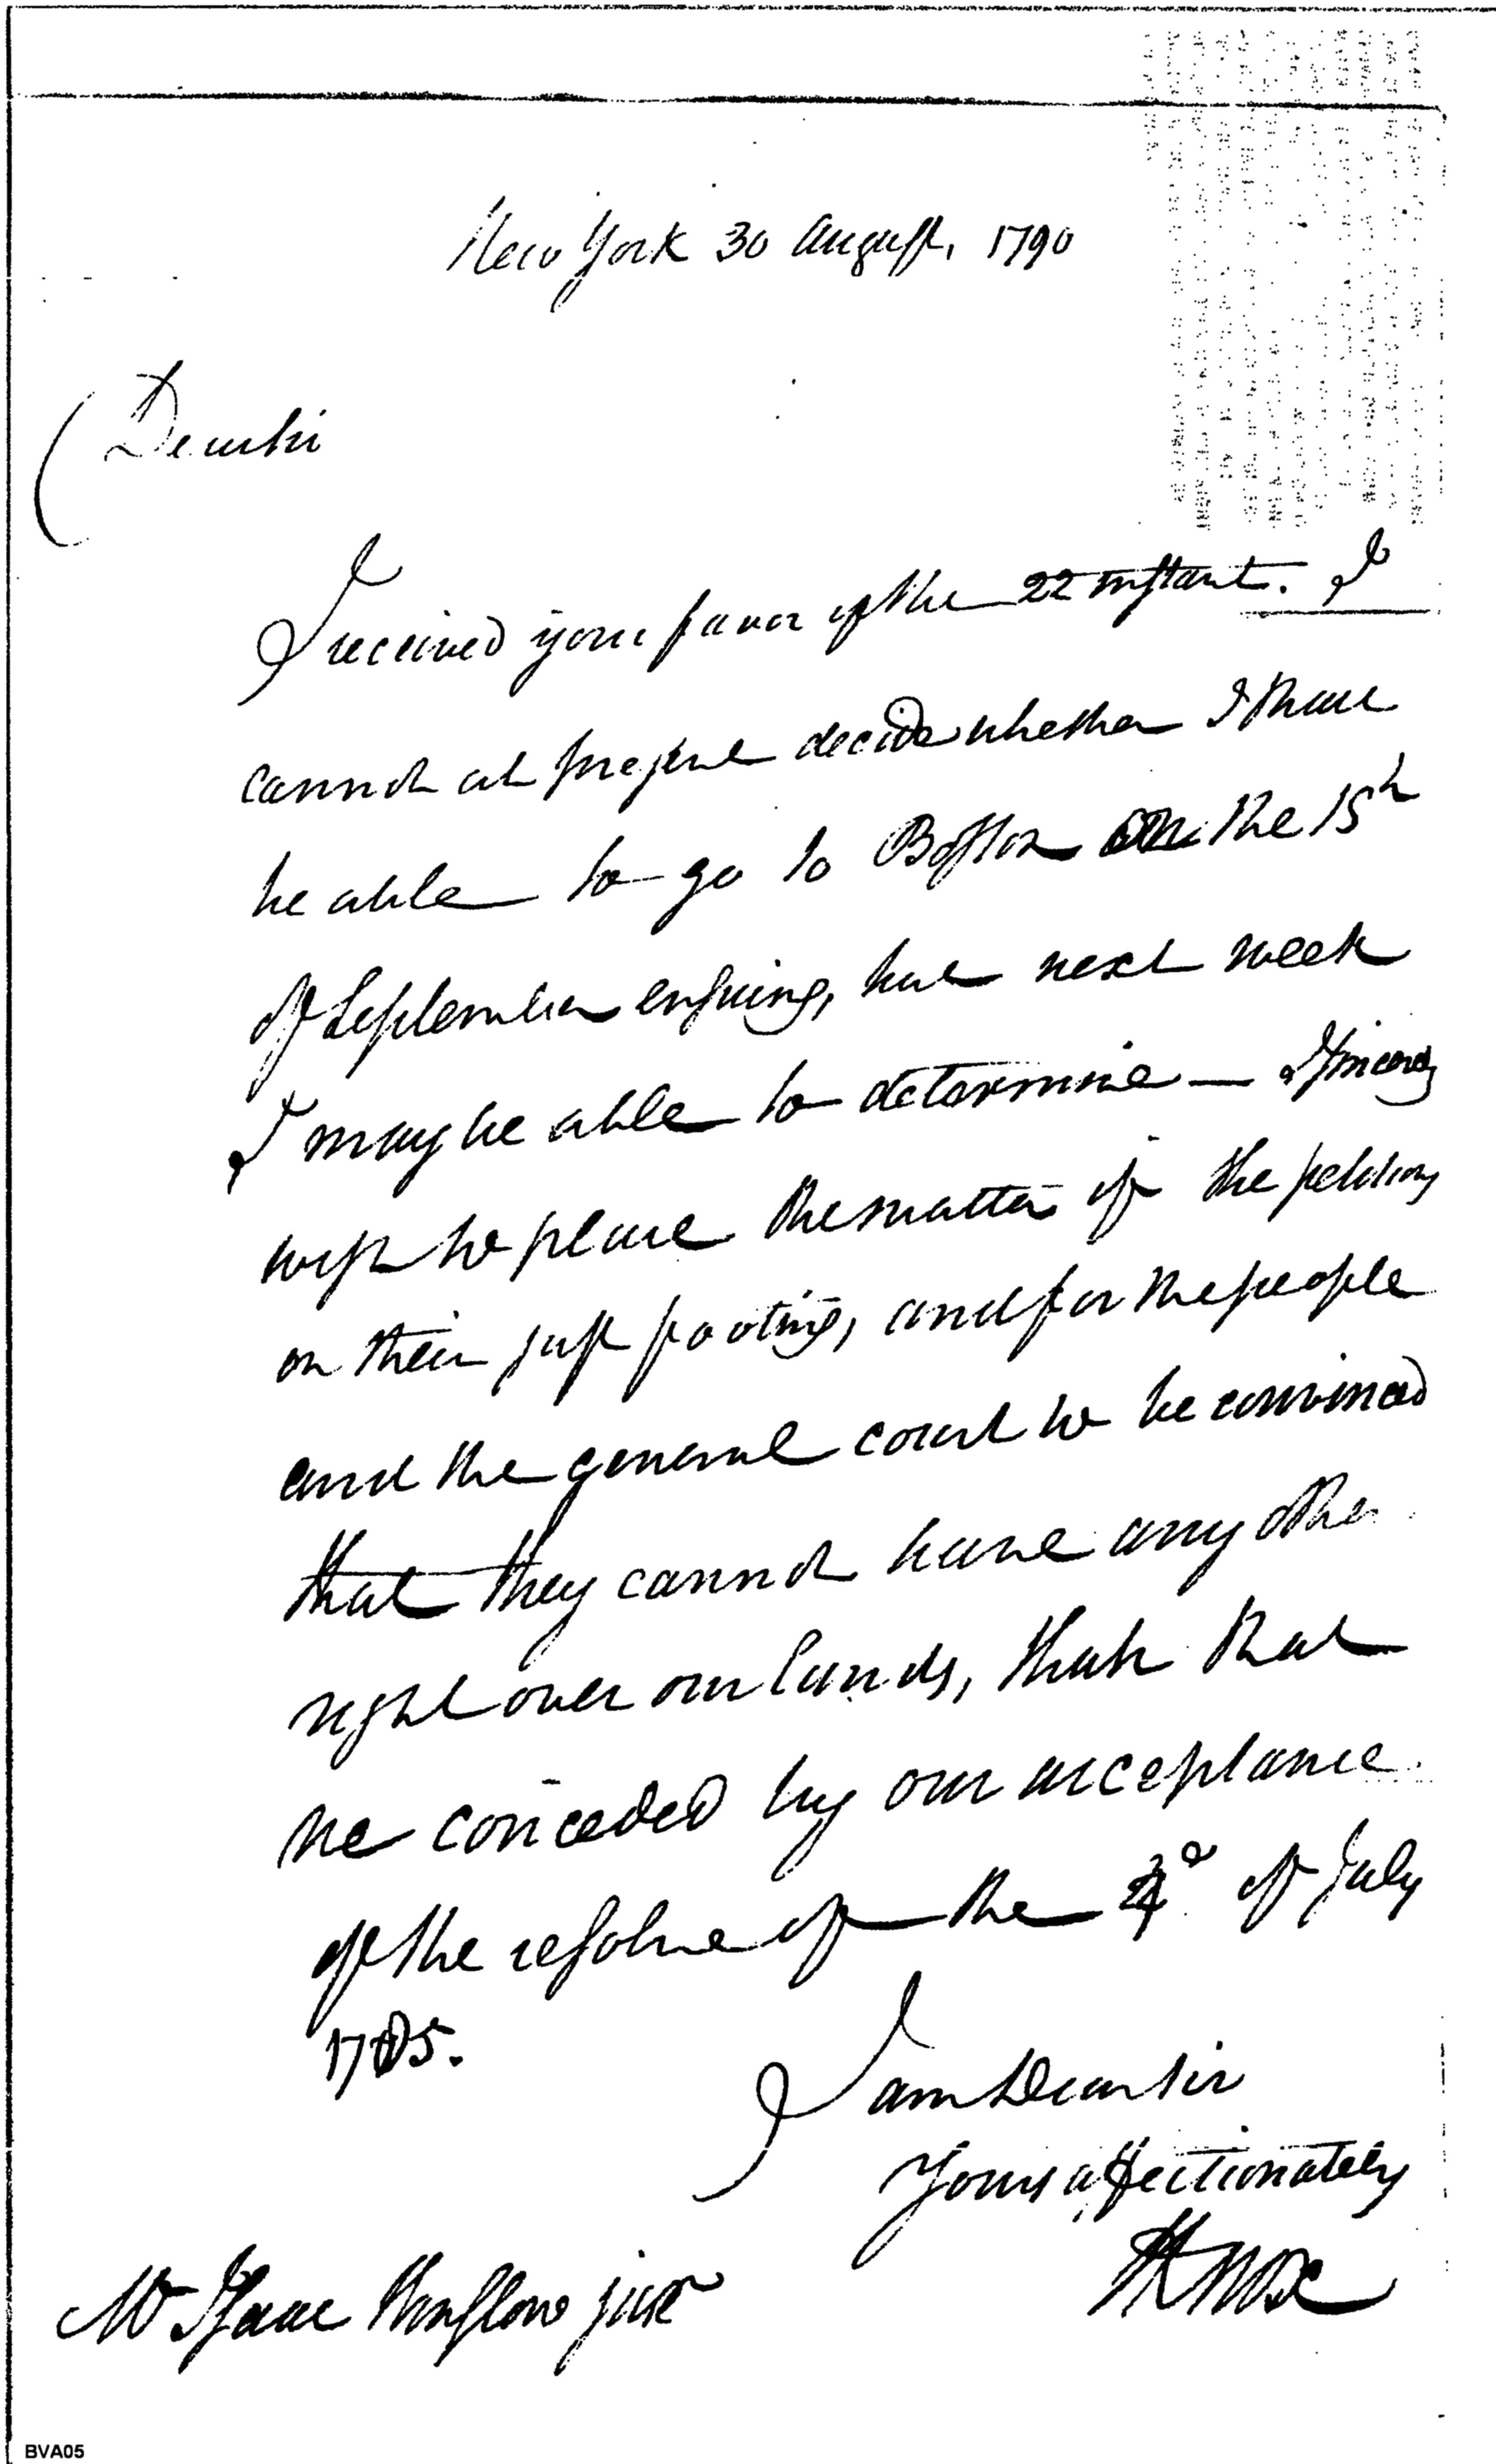 New York 30 August, 1790
Dear sir
I received your favor of the 22 instant. I
cannot at present decide whether I shall
be able to go to Boston on the 15h
of September ensuing, but next week
I may be able to determine — I sincerely
wish to place the matter of the petitions
on their just footing, and for the people
and the general court to be convinced
that they cannot have any other
right over our lands, than that
be conceded by our acceptance
of the resolve of the 4 of July
1785.
I am Dear sir
Yours affectionately
HKnox
Mr Isaac Winslow junr
BVA05